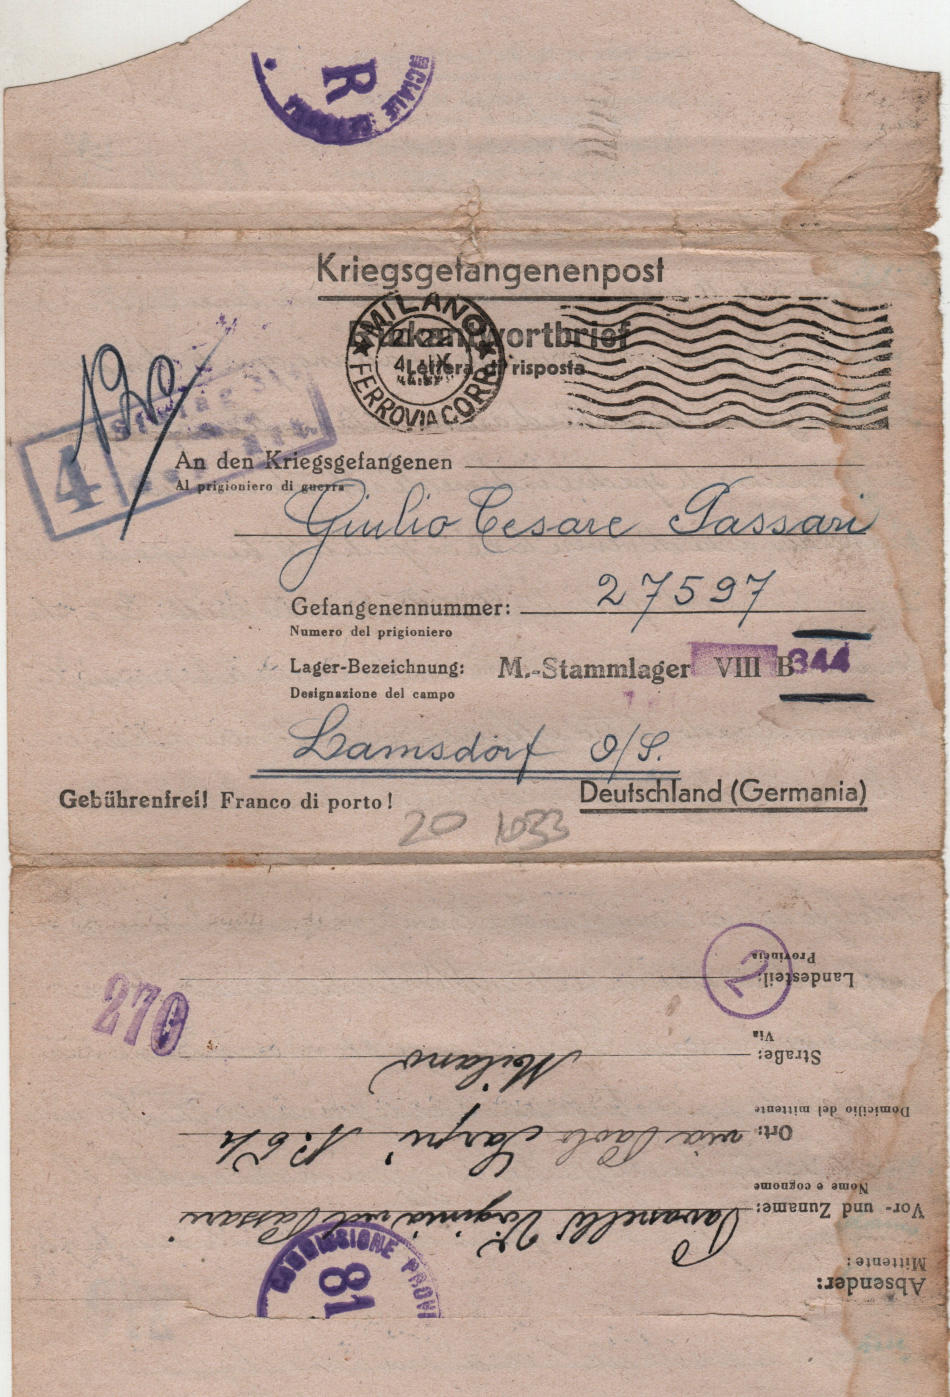 R
Kriegsgefangenenpost
Rückantwortbrief
Lettera di risposta
MILANO
21-22
4 IX
FERROVIA CORR.
4
An den Kriegsgefangenen
Al prigioniero di guerra
Giulio Cesare Passari
Gefangenennummer: 27597
Numero del prigioniero
Lager-Bezeichnung: M.-Stammlager VIII B 344
Designazione del campo
Lamsdorf O/S.
Gebührenfrei! Franco di porto!
Deutschland (Germania)
20 1033
270
2
Landesteil:
Provincia
Straße: Milano
Via
Ort: via Paolo Sarpi N. 64
Domicilio del mittente
Vor- und Zuname: Virginia ved. Passari
Nome e cognome
Absender:
Mittente:
COMMISSIONE PROVI
81